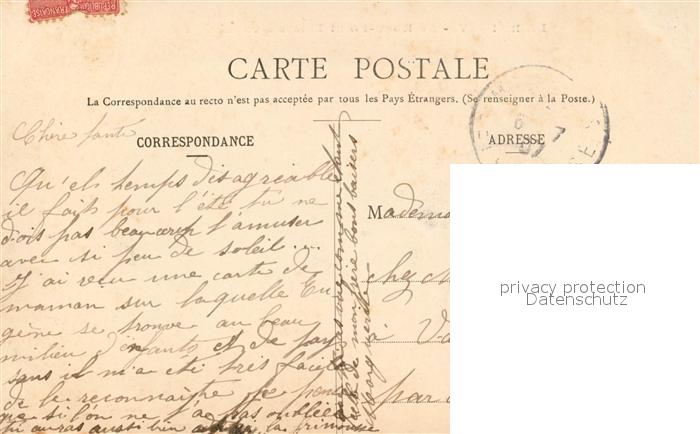 REPUBLIQUE FRANÇAISE
CARTE POSTALE
La Correspondance au recto n'est pas acceptée par tous les Pays Étrangers. (Se renseigner à la Poste.)
CORRESPONDANCE
ADRESSE
Chère
Quels temps désagreable
il fait pour l'été tu ne
dois pas beaucoup t'amuser
avec si peu de soleil ....
J'ai recu une carte de
maman sur laquelle Eu
gène se trouve au beau
milieu d'enfants et de pay
sans il m'a été très facile
de le reconnaitre je pense
que si l'on ne t'a pas oubliée
tu auras aussi bien la frimousse
bons baisers
Madem
chez M
à Va
par
privacy protection
Datenschutz